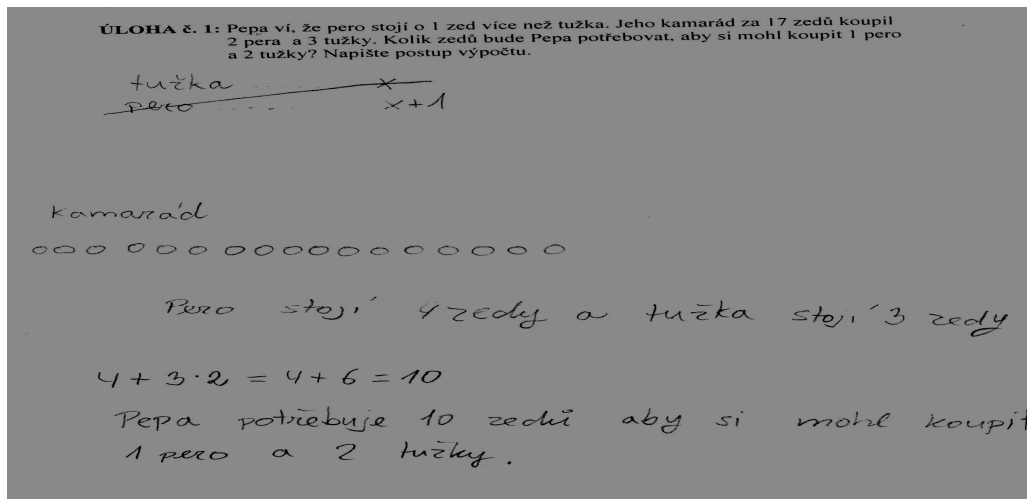 ÚLOHA č. 1: Pepa ví, že pero stojí o 1 zed více než tužka. Jeho kamarád za 17 zedů koupil
2 pera a 3 tužky. Kolik zedů bude Pepa potřebovat, aby si mohl koupit 1 pero
a 2 tužky? Napište postup výpočtu.
tužka ...... x
pero ...... x+1
kamarád
Pero stojí 4 zedy a tužka stojí 3 zedy
4 + 3·2 = 4 + 6 = 10
Pepa potřebuje 10 zedů aby si mohl koupit
1 pero a 2 tužky.